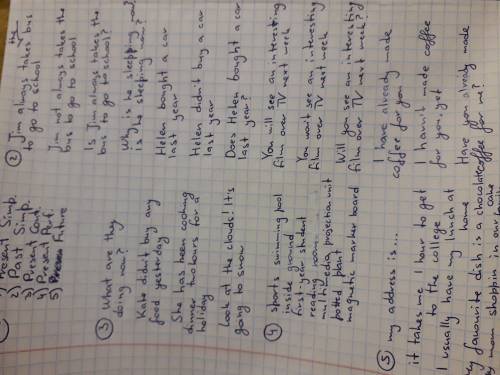 1) Present Simp.
2) Past Simp.
3) Present Cont.
4) Present Perf.
5) Future
② Jim always takes the bus
to go to school
Jim not always takes the
bus to go to school
Is Jim always takes the
bus to go to school?
Why is he sleeping now?
Is he sleeping now?
Helen bought a car
last year
Helen didn't buy a car
last year
Does Helen bought a car
last year
You will see an interesting
film over TV next week
You won't see an interesting
film over TV next week
Will you see an interesting
film over TV next week?
I have already made
coffee for you
I havn't made coffee
for you yet
Have you already made
coffee for me?
③ What are they
doing now?
Kate didn't buy any
food yesterday
She has been cooking
dinner two hours for a
holiday
Look at the clouds! It's
going to snow
④ sports swimming pool
inside ground
first-year student
reading room
multimedia projection unit
potted plant
magnetic marker board
⑤ my address is...
it takes me 1 hour to get
to the college
I usually have my lunch at
home
my favourite dish is a chocolate
shoppin in our cake